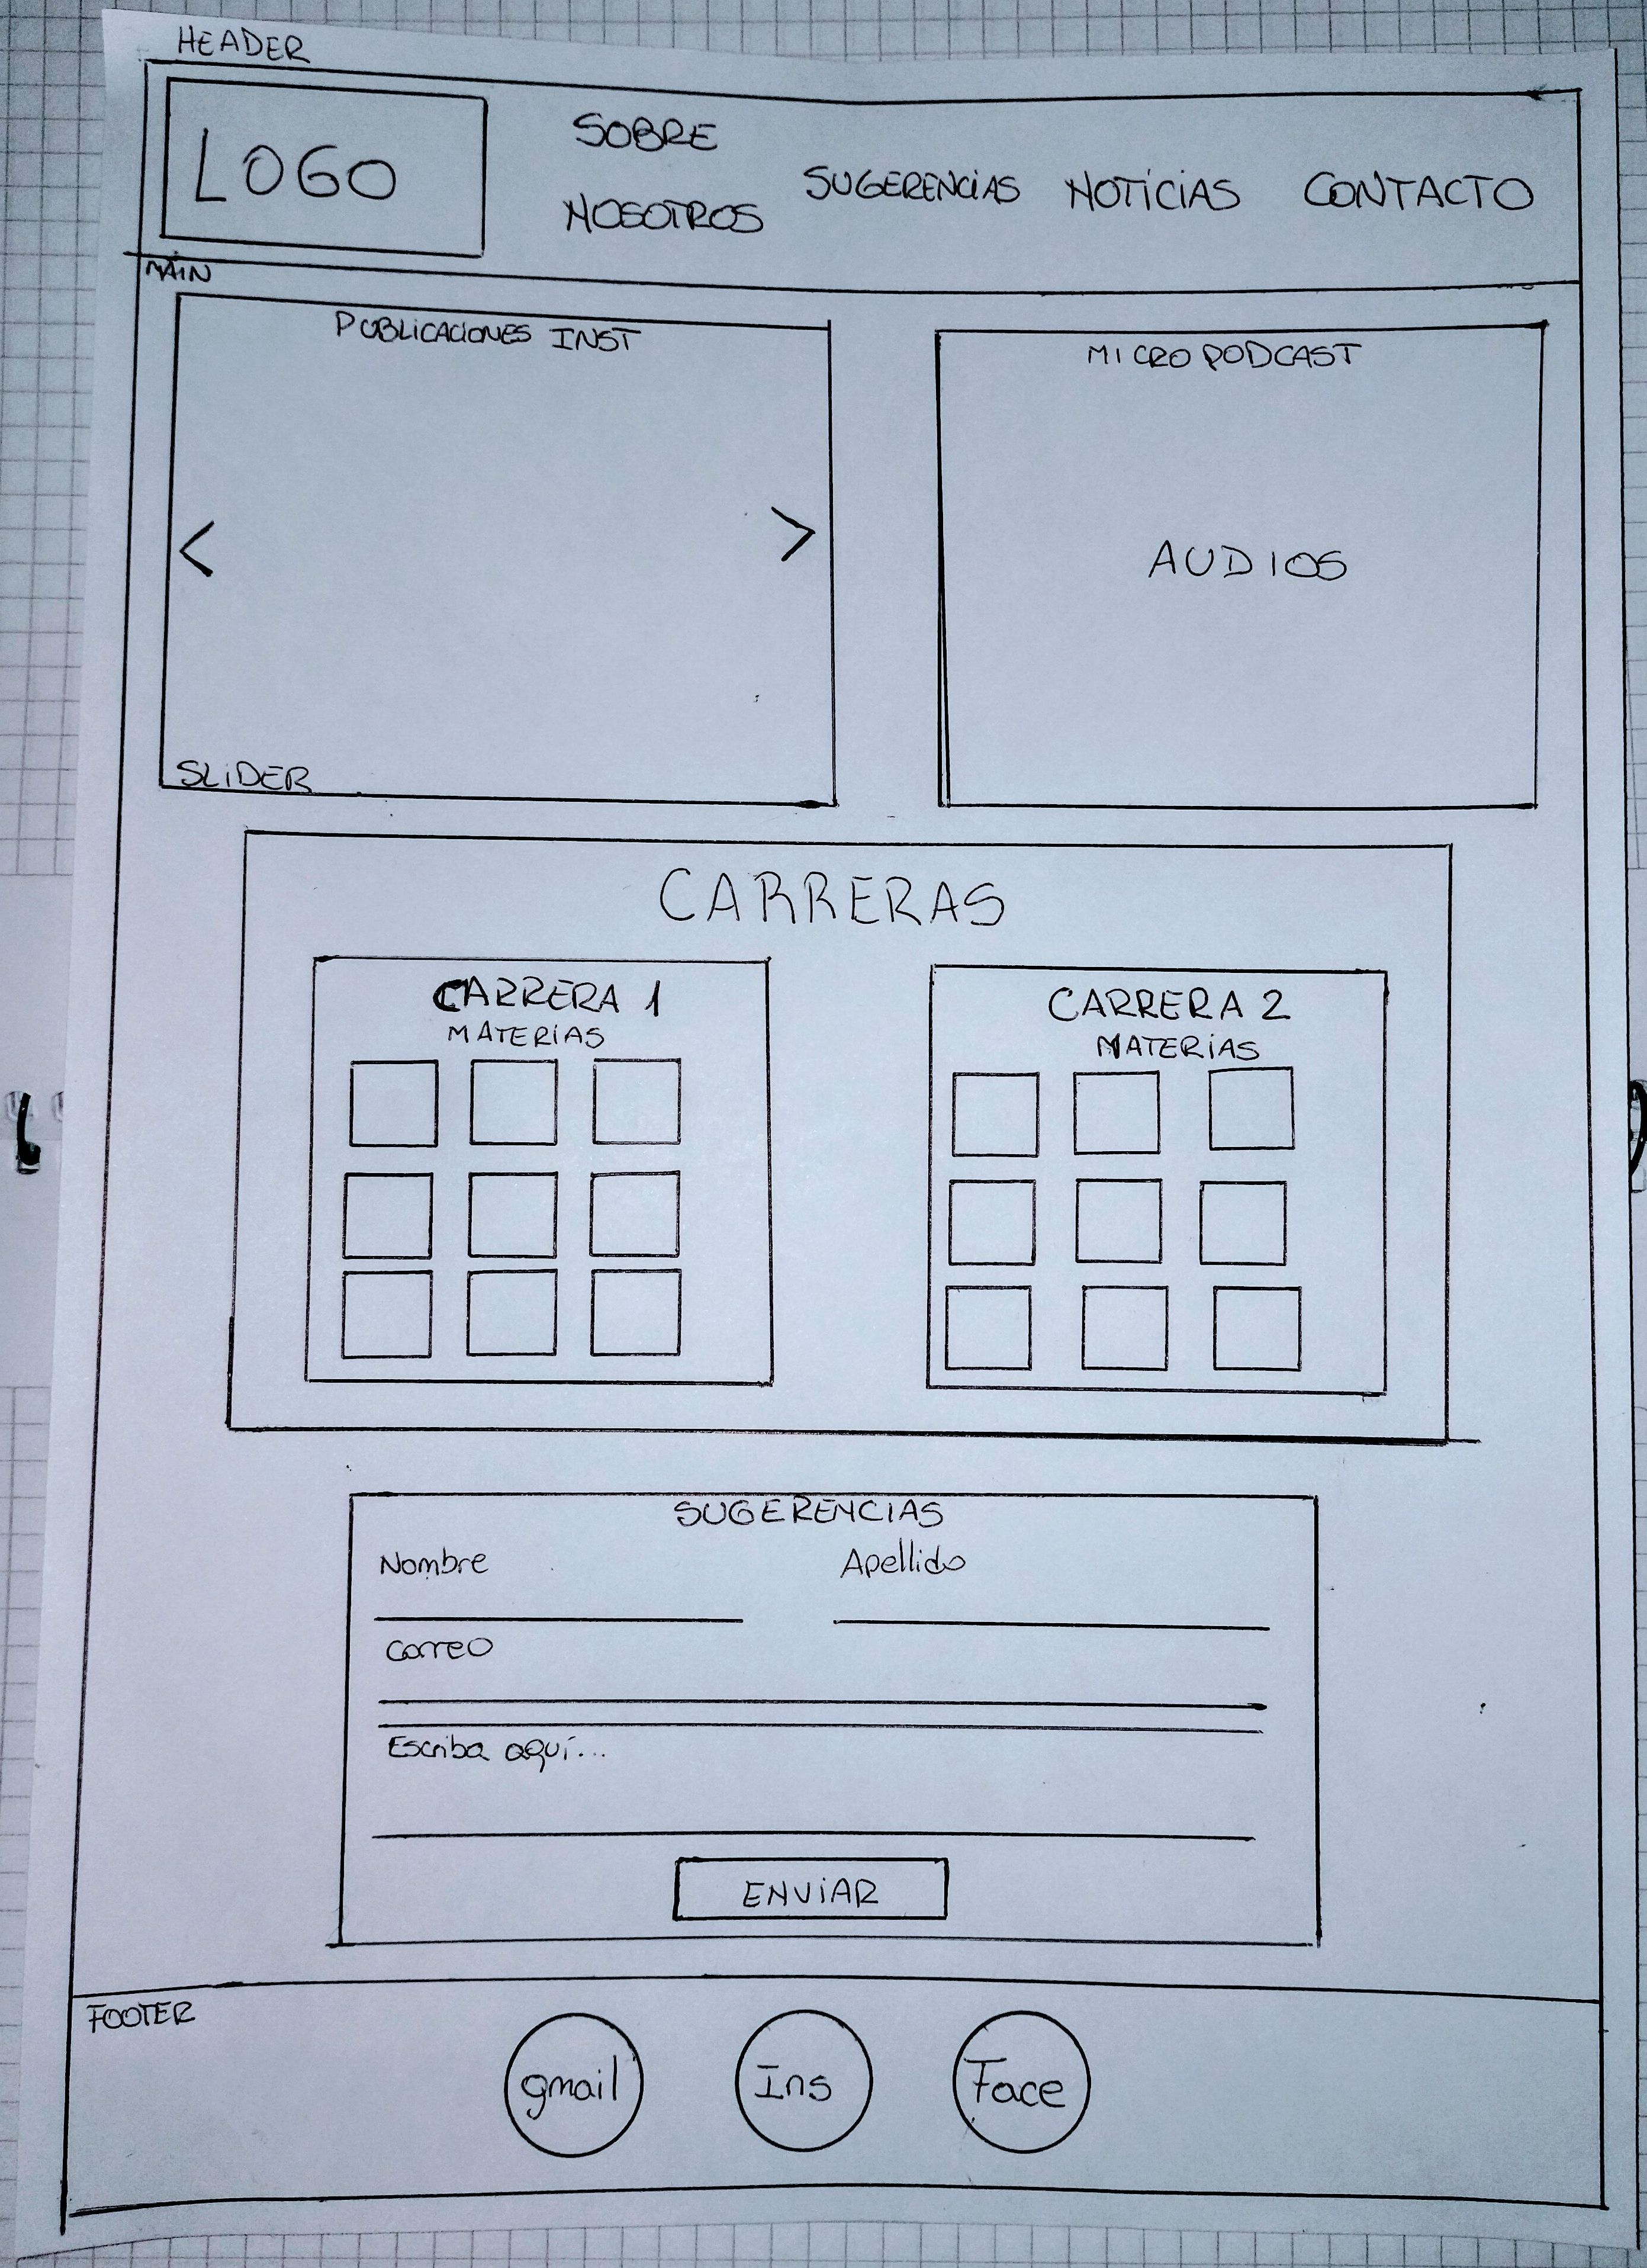 HEADER
LOGO
SOBRE
NOSOTROS
SUGERENCiAS
NOTiCiAS
CONTACTO
MAiN
PUBLiCACiONES INST
<
>
SLiDER
MICRO PODCAST
AUDIOS
CARRERAS
CARRERA 1
MATERiAS
CARRERA 2
MATERiAS
SUGERENCIAS
Nombre
Apellido
Correo
Escriba aquí...
ENViAR
FOOTER
gmail
Ins
Face